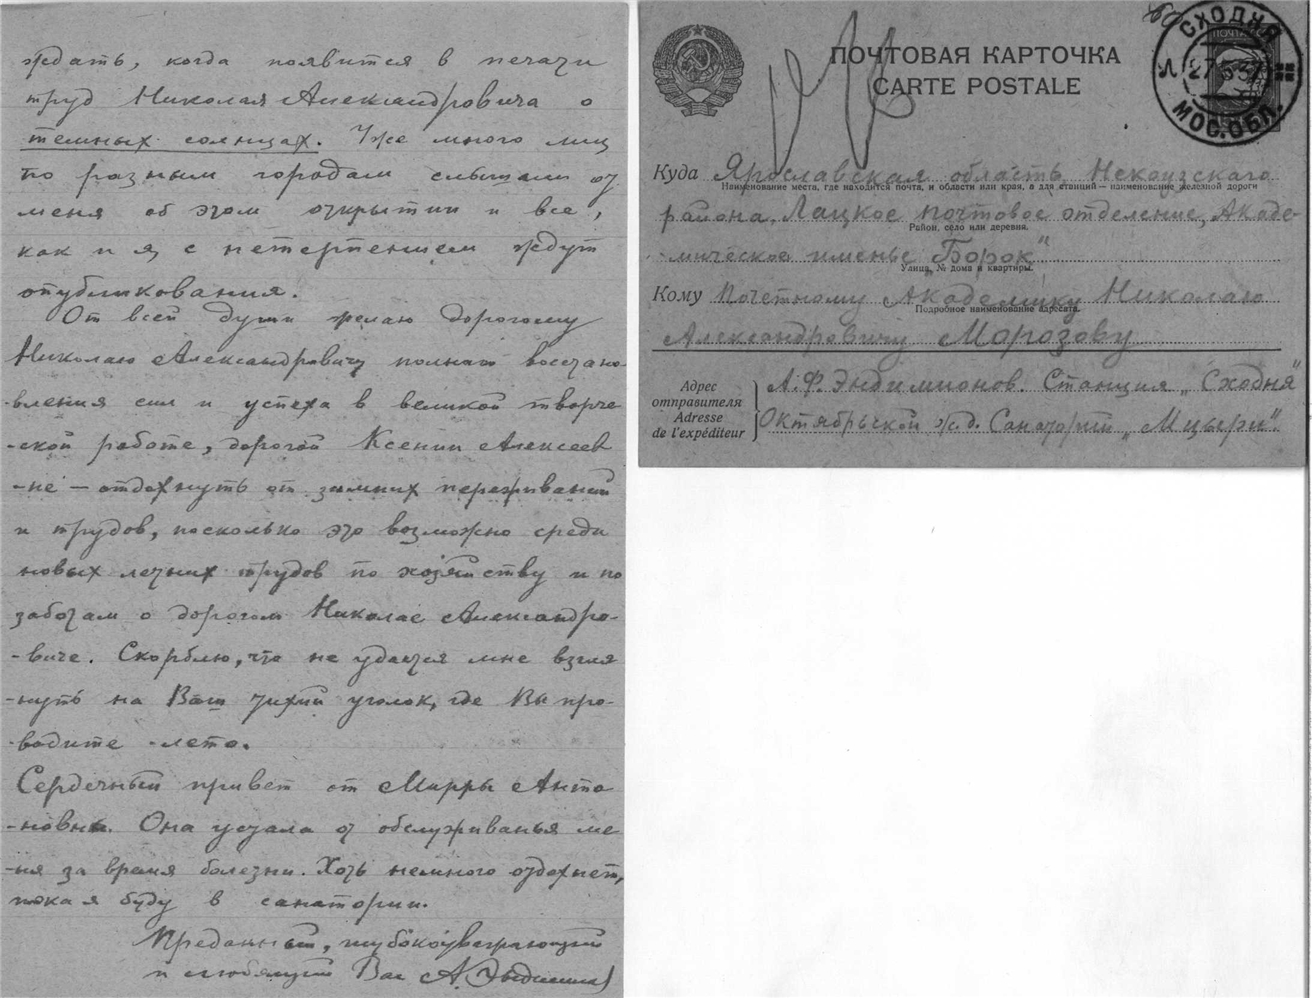 ждать, когда появится в печати
труд Николая Александровича о
темных солнцах. Уже много лиц
по разным городам слышали от
меня об этом открытии и все,
как и я с нетерпением ждут
опубликования.
От всей души желаю дорогому
Николаю Александровичу полного восстано-
-вления сил и успеха в великой творче
-ской работе, дорогой Ксении Алексеев
-не – отдохнуть от зимних переживаний
и трудов, поскольку это возможно среди
новых летних трудов по хозяйству и по
заботам о дорогом Николае Александро-
-виче. Скорблю, что не удается мне взгля
-нуть на Ваш тихий уголок, где Вы про-
-водите лето.
Сердечный привет от Мирры Анто
-новны. Она устала от обслуживанья ме
-ня за время болезни. Хоть немного отдохнет,
пока я буду в санатории.
Преданный, глубокоуважающий
и любящий Вас А. Эндимионов
ПОЧТОВАЯ КАРТОЧКА
CARTE POSTALE
СХОДНЯ
МОС. ОБЛ.
Куда Ярославская область, Некоузского
Наименование места, где находится почта, и области или края, а для станций – наименование железной дороги
района, Лацкое почтовое отделение, Акаде-
Район, село или деревня.
-мическое именье "Борок"
Улица, № дома и квартиры.
Кому Почетному Академику Николаю
Подробное наименование адресата.
Александровичу Морозову
Адрес отправителя
Adresse de l'expéditeur
А. Ф. Эндимионов. Станция „Сходня"
Октябрьской ж.д. Санаторий „Мцыри".